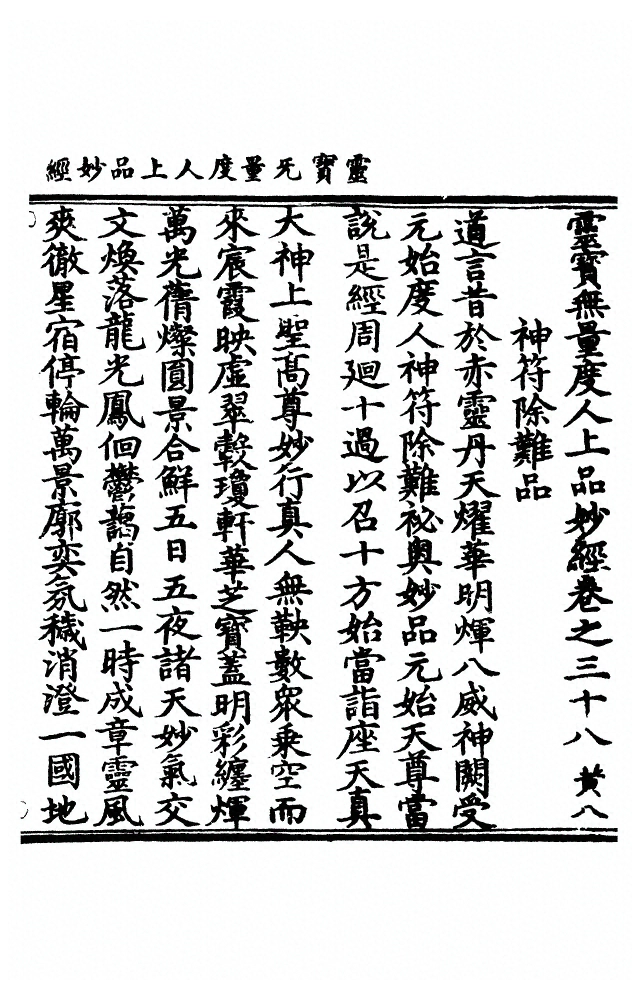 靈寳无量度人上品妙經
靈寳無量度人上品妙經卷之三十八 黄八
神符除難品
道言昔於赤靈丹天燿華明煇八威神闕受
元始度人神符除難祕奥妙品元始天尊當
説是經周廻十過以召十方始當詣座天真
大神上聖髙尊妙行真人無鞅數衆乗空而
來宸霞映虚翠轂瓊軒華芝寳蓋明彩纏煇
萬光蒨燦圓景合鮮五日五夜諸天妙氣交
文煥落龍光鳳佪鬱藹自然一時成章靈風
爽徹星宿停輪萬景廓奕氛穢消澄一國地